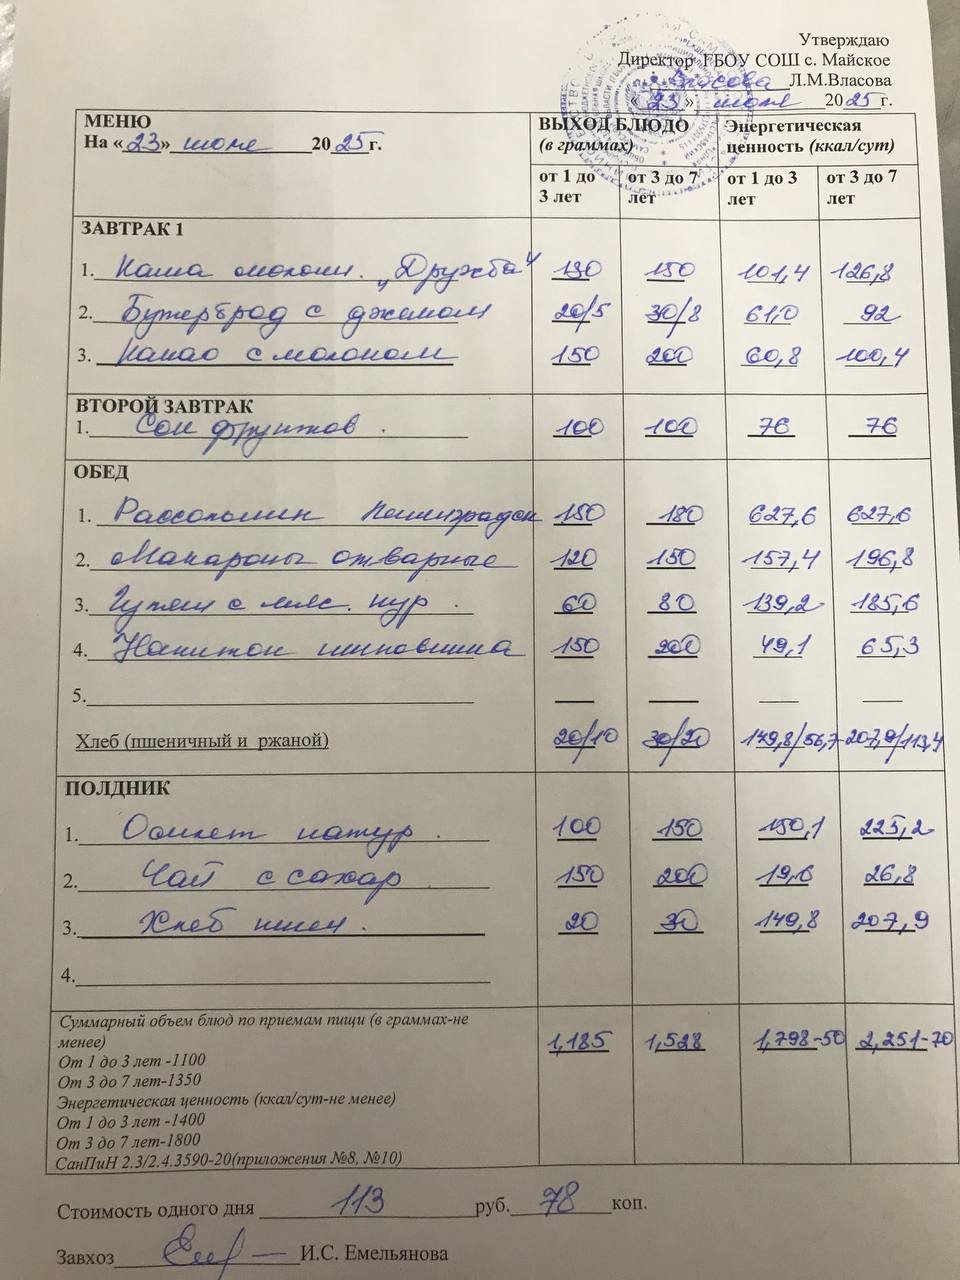 Утверждаю
Директор ГБОУ СОШ с. Майское
Власова Л.М.Власова
«23» июля 2025 г.
МЕНЮ
На «23» июля 2025г.
ВЫХОД БЛЮДО
(в граммах)
Энергетическая
ценность (ккал/сут)
от 1 до 3 лет от 3 до 7 лет от 1 до 3 лет от 3 до 7 лет
ЗАВТРАК 1
1. Каша молочн. „Дружба“ 130 150 101,4 126,8
2. Бутерброд с джемом 20/5 30/8 61,0 92
3. Какао с молоком 150 200 60,8 100,4
ВТОРОЙ ЗАВТРАК
1. Сок фруктов. 100 100 76 76
ОБЕД
1. Рассольник Ленинградск 150 180 627,6 627,6
2. Макароны отварные 120 150 157,4 196,8
3. Гуляш с мяс. кур. 60 80 139,2 185,6
4. Напиток шиповника 150 200 49,1 65,3
5.
Хлеб (пшеничный и ржаной) 20/10 30/20 149,8/56,7 207,9/113,4
ПОЛДНИК
1. Омлет натур. 100 150 150,1 225,2
2. Чай с сахар. 150 200 19,6 26,8
3. Хлеб пшен. 20 30 149,8 207,9
4.
Суммарный объем блюд по приемам пищи (в граммах-не
менее)
От 1 до 3 лет -1100
От 3 до 7 лет-1350
Энергетическая ценность (ккал/сут-не менее)
От 1 до 3 лет -1400
От 3 до 7 лет-1800
СанПиН 2.3/2.4.3590-20(приложения №8, №10)
1,185 1,528 1,798-50 2,251-70
Стоимость одного дня 113 руб. 78 коп.
Завхоз И.С. Емельянова